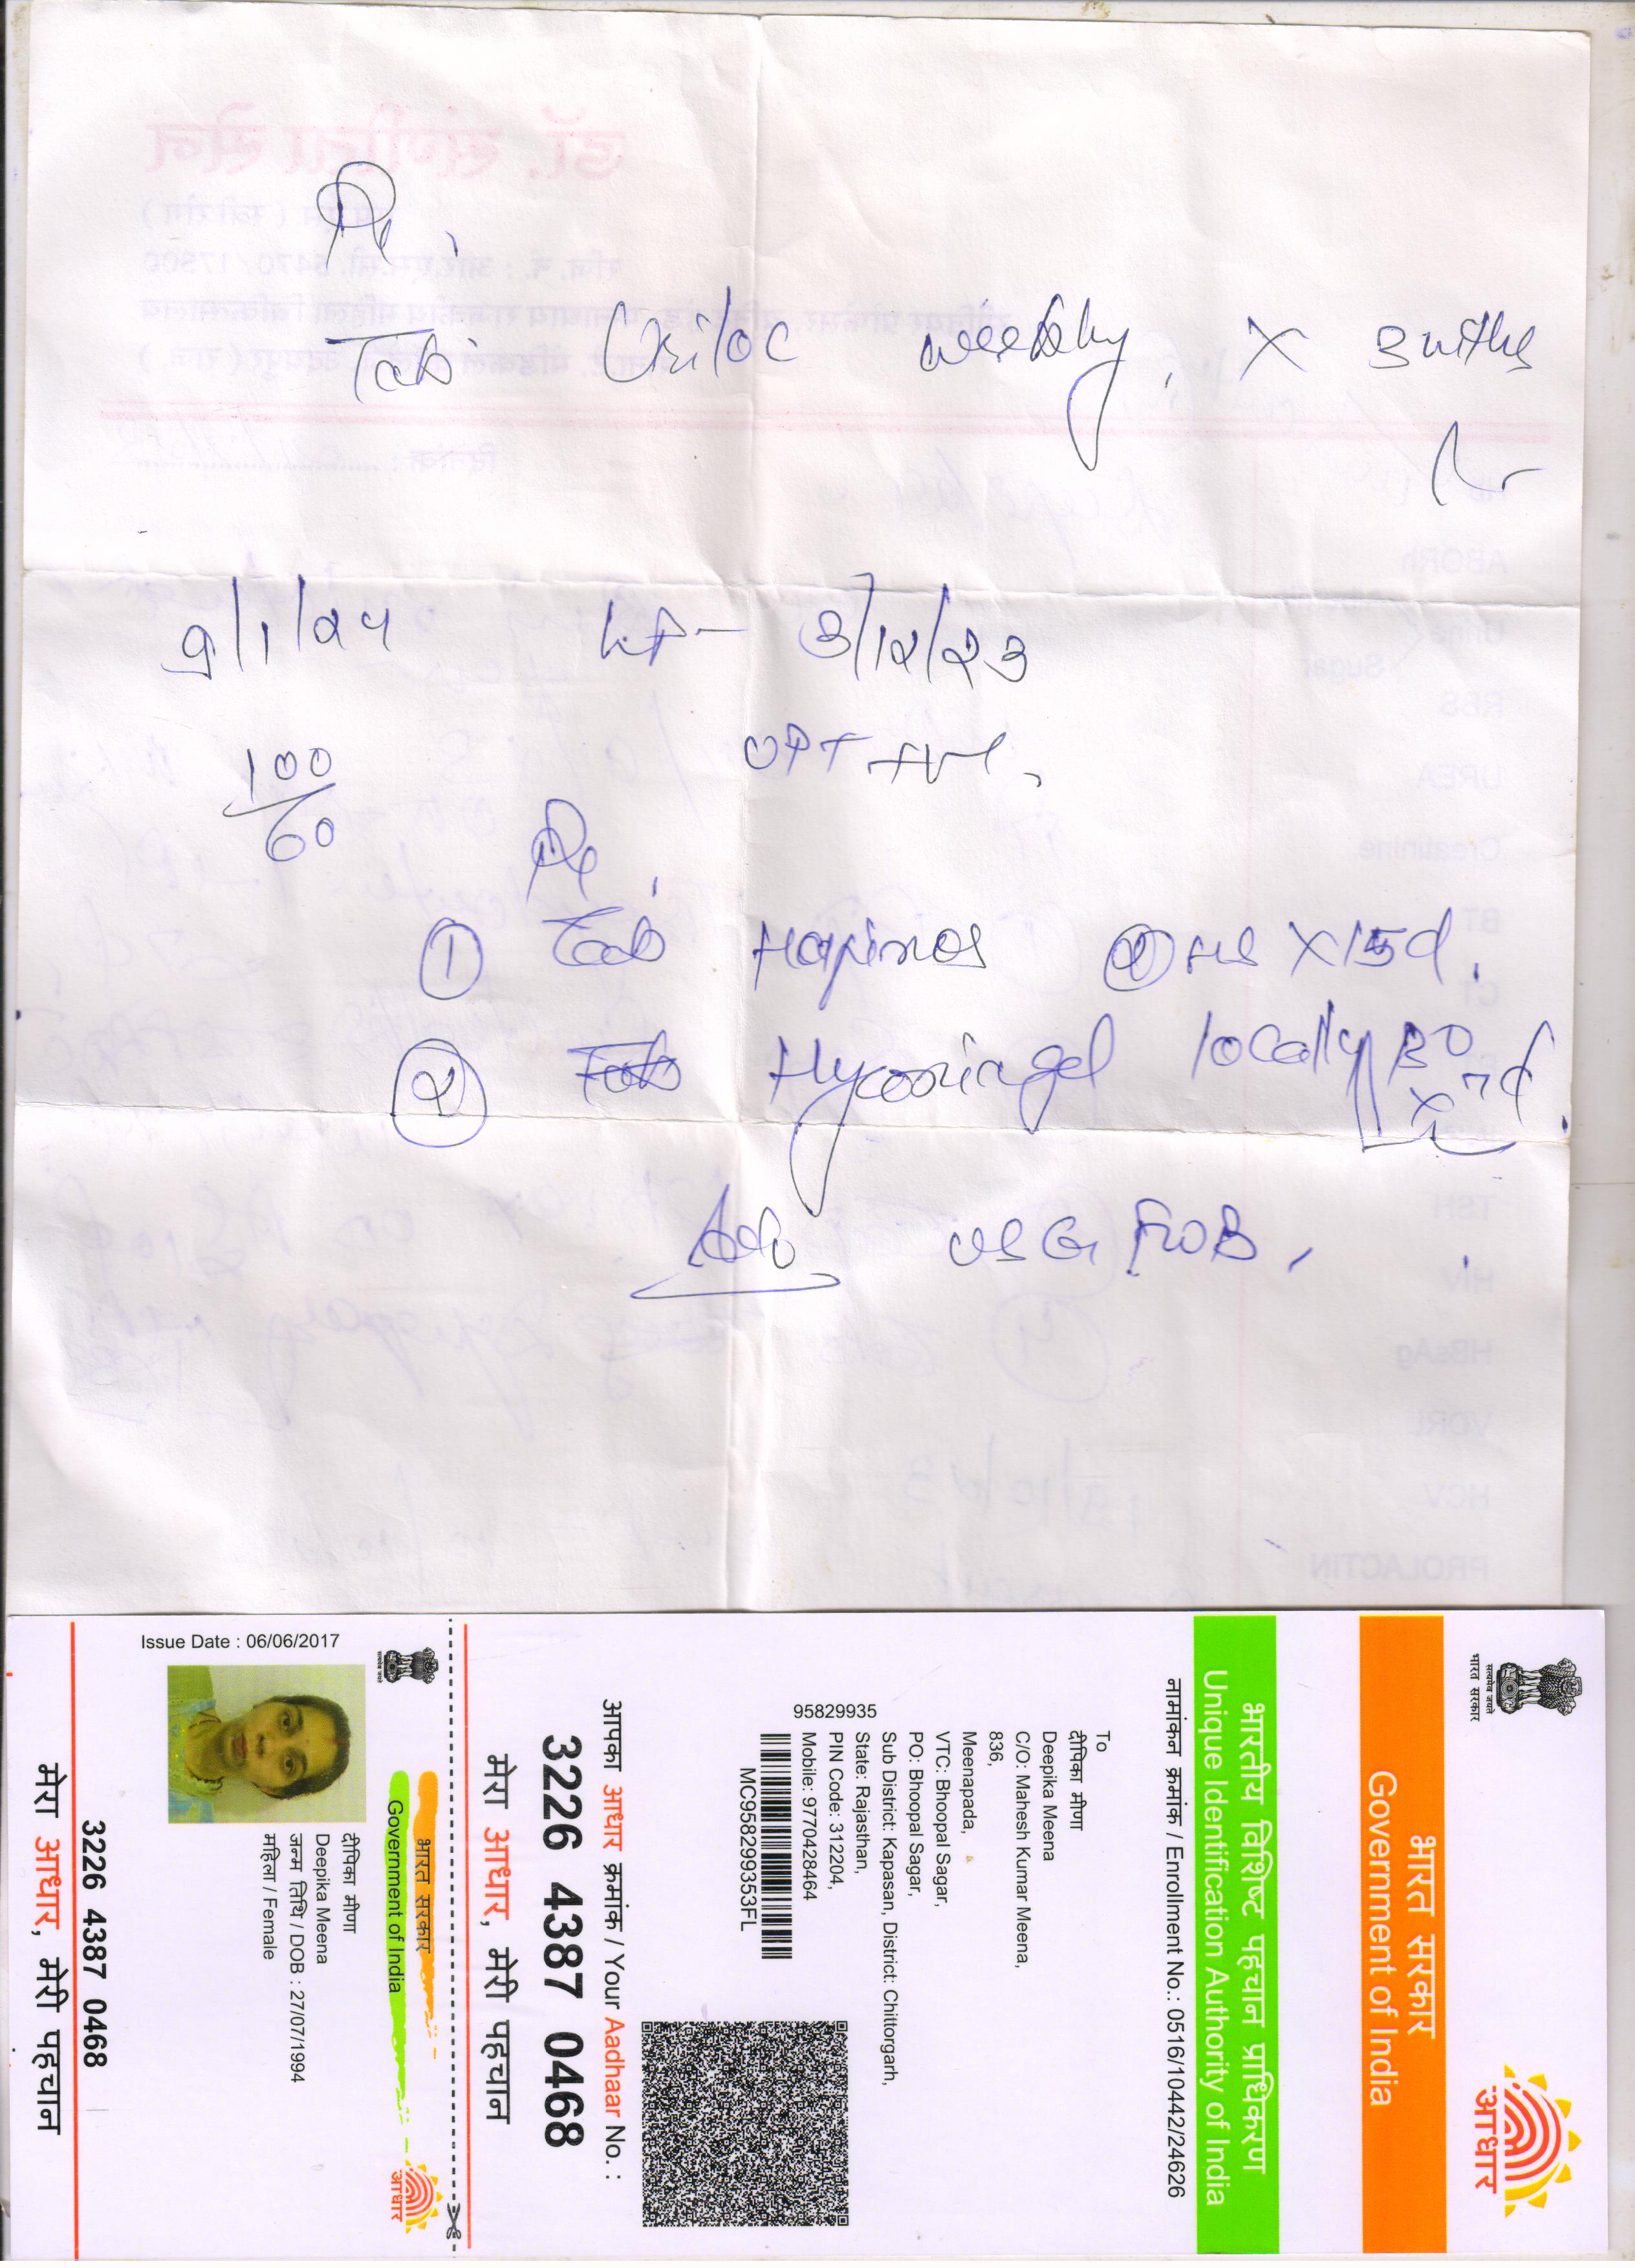 Rx,
Tab Uniloc weekly, X 3 mths
9/1/24 LP- 3/12/23
100/60 UPT +ve,
Rx,
① Tab HS X 15d,
② Tab gel locally BD
X 7d.
Adv USG FWB,
भारत सरकार
Government of India
सत्यमेव जयते
भारत सरकार
आधार
भारतीय विशिष्ट पहचान प्राधिकरण
Unique Identification Authority of India
नामांकन क्रमांक / Enrollment No.: 0516/10442/24626
To
दीपिका मीणा
Deepika Meena
C/O: Mahesh Kumar Meena,
836,
Meenapada,
VTC: Bhoopal Sagar,
PO: Bhoopal Sagar,
Sub District: Kapasan, District: Chittorgarh,
State: Rajasthan,
PIN Code: 312204,
Mobile: 9770428464
95829935
MC958299353FL
आपका आधार क्रमांक / Your Aadhaar No. :
3226 4387 0468
मेरा आधार, मेरी पहचान
भारत सरकार
Government of India
आधार
Issue Date : 06/06/2017
दीपिका मीणा
Deepika Meena
जन्म तिथि / DOB : 27/07/1994
महिला / Female
3226 4387 0468
मेरा आधार, मेरी पहचान